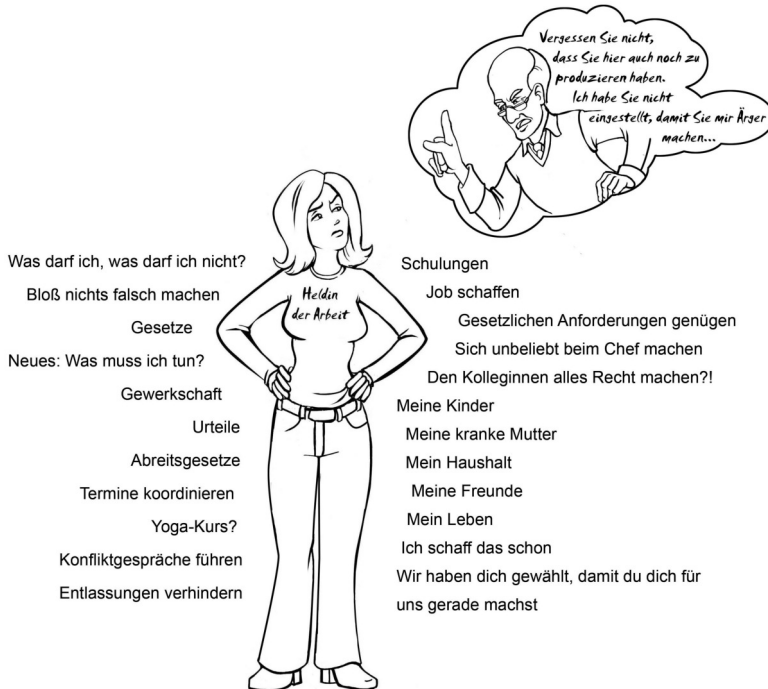 Vergessen Sie nicht,
dass Sie hier auch noch zu
produzieren haben.
Ich habe Sie nicht
eingestellt, damit Sie mir Ärger
machen...
Heldin
der Arbeit
Was darf ich, was darf ich nicht?
Bloß nichts falsch machen
Gesetze
Neues: Was muss ich tun?
Gewerkschaft
Urteile
Abreitsgesetze
Termine koordinieren
Yoga-Kurs?
Konfliktgespräche führen
Entlassungen verhindern
Schulungen
Job schaffen
Gesetzlichen Anforderungen genügen
Sich unbeliebt beim Chef machen
Den Kolleginnen alles Recht machen?!
Meine Kinder
Meine kranke Mutter
Mein Haushalt
Meine Freunde
Mein Leben
Ich schaff das schon
Wir haben dich gewählt, damit du dich für
uns gerade machst